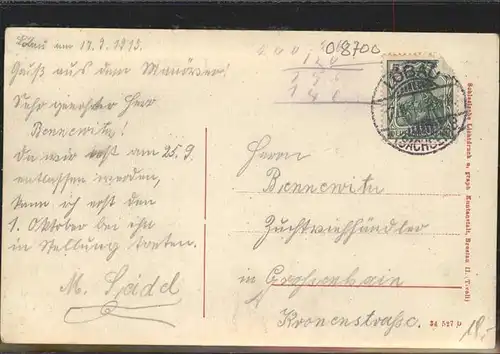 Löbau am 17.9.1913.
Gruß aus dem Manöver!
Sehr geehrter Herr
Bennewitz!
Da wir erst am 25.9.
entlassen werden,
kann ich erst den
1. Oktober bei ihn
in Stellung treten.
M. Seidel
08700
LÖBAU
(SACHSEN)
Herrn
Bennewitz
Zuchtviehhändler
in Grossenhain
Kronenstrasse.
Schlesische Lichtdruck u. graph. Kunstanstalt, Breslau II. (Tivoli)
34 527
10,-